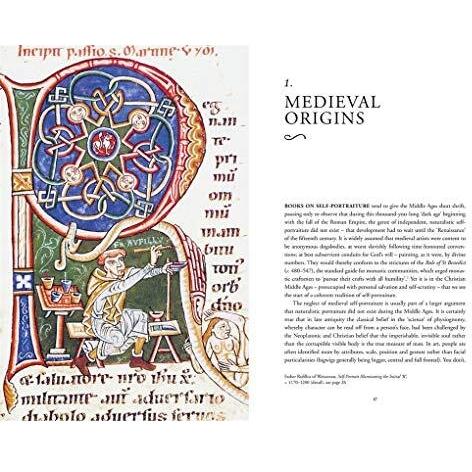 Incipit passio s. Martine v
eg
n.am
te
pri
mū
om
mū
ē nr
FR RVFILLV
e saluatore nro dñi xp̄i
diabolo aduersus seruos
1.
MEDIEVAL
ORIGINS
BOOKS ON SELF-PORTRAITURE tend to give the Middle Ages short shrift,
pausing only to observe that during this thousand-year long 'dark age' beginning
with the fall of the Roman Empire, the genre of independent, naturalistic self-
portraiture did not exist – that development had to wait until the 'Renaissance'
of the fifteenth century. It is widely assumed that medieval artists were content to
be anonymous dogsbodies, at worst slavishly following time-honoured conven-
tions; at best subservient conduits for God's will – painting, as it were, by divine
numbers. They would thereby conform to the strictures of the Rule of St Benedict
(c. 480–547), the standard guide for monastic communities, which urged monas-
tic craftsmen to 'pursue their crafts with all humility'.¹ Yet it is in the Christian
Middle Ages – preoccupied with personal salvation and scrutiny – that we see
the start of a coherent tradition of self-portraiture.
The neglect of medieval self-portraiture is usually part of a larger argument
that naturalistic portraiture did not exist during the Middle Ages. It is certainly
true that in late antiquity the classical belief in the 'science' of physiognomy,
whereby character can be read off from a person's face, had been challenged by
the Neoplatonic and Christian belief that the imperishable, invisible soul rather
than the corruptible visible body is the true measure of man. In art, people are
often identified more by attributes, scale, position and gesture rather than facial
particularities (bigwigs generally being bigger, central and full frontal). You don't,
Frater Rufillus of Weissenau, Self-Portrait Illuminating the Initial 'R',
c. 1170–1200 (detail), see page 26